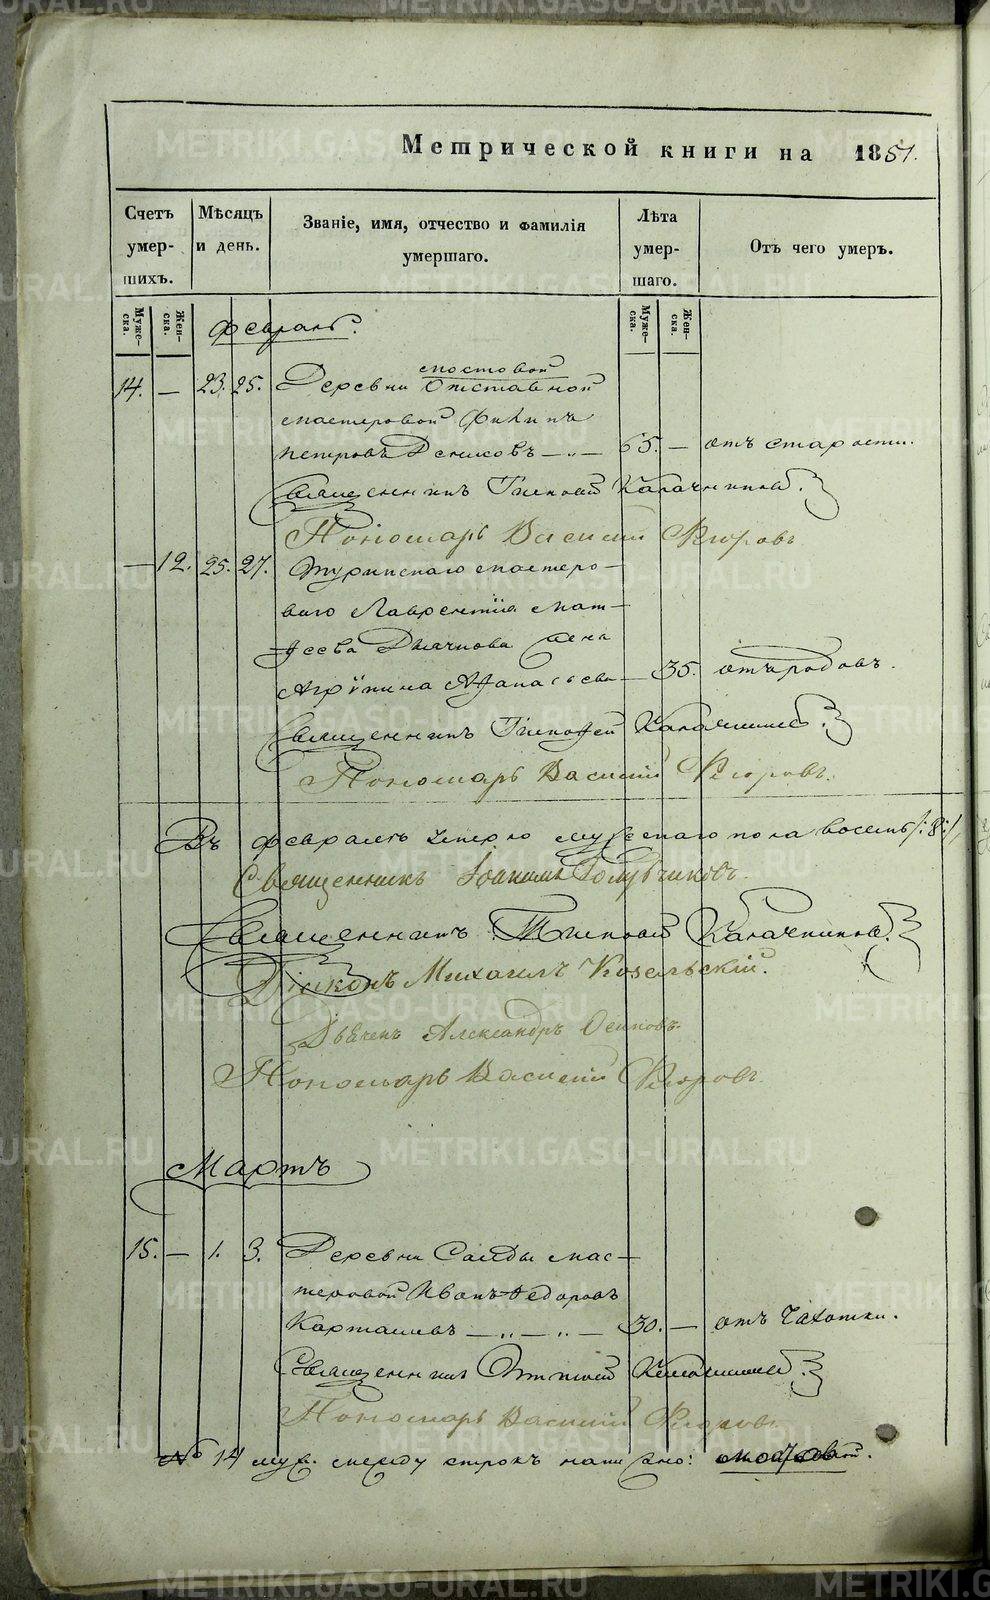 Метрической книги на 1851.
Счетъ умер- шихъ.
Мѣсяцъ и день.
Званіе, имя, отчество и фамилія умершаго.
Лѣта умер- шаго.
Отъ чего умеръ.
Муже- ска.
Жен- ска.
Муже- ска.
Жен- ска.
Февраль.
мостовой
14. — 23. 25. Деревни Отставной
мастеровой Филипъ
Петровъ Дениковъ — 65. — отъ старости.
Священникъ Тимофей Калачниковъ.
Пономарь Василій Флоровъ
— 12. 25. 27. Туринскаго мастеро-
ваго Лаврентія Мат-
ѳеева Дьячкова жена
Агрипина Аѳанасьева — 35. отъ родовъ.
Священникъ Тимофей Калачниковъ.
Пономарь Василій Флоровъ.
Въ Февралѣ умерло мужескаго пола восемь /:8:/,
Священникъ Іоакимъ Голубчиковъ.
Священникъ Тимофей Калачниковъ.
Діаконъ Михаилъ Козельскій.
Дьячекъ Александръ Осиповъ.
Пономарь Василій Флоровъ.
Мартъ
15. — 1. 3. Деревни Салды мас-
теровой Иванъ Ѳедоровъ
Карташевъ — „ — „ — 30. — отъ чахотки.
Священникъ Калачниковъ.
Пономарь Василій Флоровъ.
№ 14 муж. между строкъ написано: мостовой.
METRIKI.GASO-URAL.RU